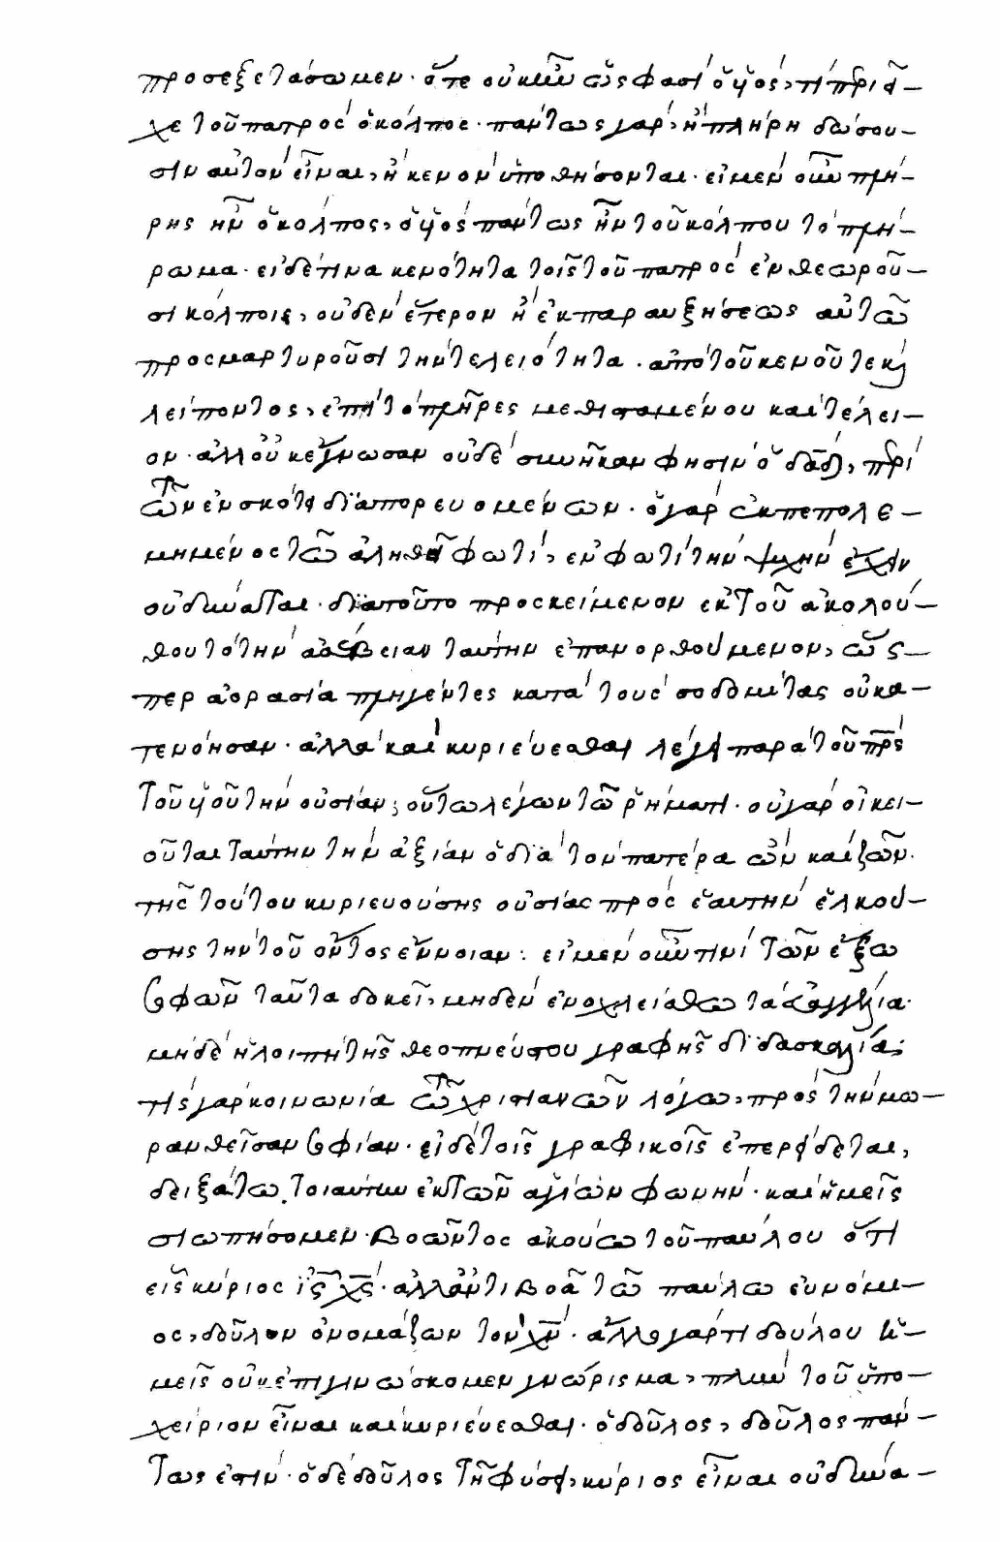 προσεξετάσωμεν· ὅτε οὐκ ἦν ὥς φασὶ ὁ υἱός, τί περιεῖ-
χε τοῦ πατρὸς ὁ κόλπος· πάντως γὰρ, ἢ πλήρη δώσου-
σιν αὐτὸν εἶναι, ἢ κενὸν ὑποθήσονται· εἰ μὲν οὖν πλή-
ρης ἦν ὁ κόλπος, ὁ υἱὸς πάντως ἦν τοῦ κόλπου τὸ πλή-
ρωμα· εἰ δέ τινα κενότητα τοῖς τοῦ πατρὸς ἐνθεωροῦ-
σι κόλποις, οὐδὲν ἕτερον ἢ ἐκ παραυξήσεως αὐτῶ
προσμαρτυροῦσι τὴν τελειότητα· ἀπὸ τοῦ κενοῦ τε καὶ
λείποντος, ἐπὶ τὸ πλῆρες μεθισταμένου καὶ τέλει-
ον· ἀλλ' οὐκ ἔγνωσαν οὐδὲ συνῆκαν φησὶν ὁ δαδ, περὶ
τῶν ἐν σκότει διαπορευομένων· ὁ γὰρ ἐκπεπολε-
μημένος τῶ ἀληθινῶ φωτὶ, ἐν φωτὶ τὴν ψυχὴν ἔχειν
οὐ δύναται· διὰ τοῦτο προσκείμενον ἐκ τοῦ ἀκολού-
θου τὸ τὴν ἀσέβειαν ταύτην ἐπανορθούμενον, ὥς-
περ ἀορασία πληγέντες κατὰ τοὺς σοδομίτας οὐ κα-
τενόησαν· ἀλλὰ καὶ κυριεύεσθαι λέγει παρὰ τοῦ πρς
τοῦ υἱοῦ τὴν οὐσίαν, οὕτω λέγων τῶ ῥήματι· οὐ γὰρ οἰκει-
οῦται ταύτην τὴν ἀξίαν ὁ διὰ τὸν πατέρα ὢν καὶ ζῶν·
τῆς τούτου κυριευούσης οὐσίας πρὸς ἑαυτὴν ἑλκού-
σης τὴν τοῦ ὄντος ἔννοιαν: εἰ μὲν οὖν τινὶ τῶν ἔξω
σοφῶν ταῦτα δοκεῖ, μηδὲν ἐνοχλείσθω τὰ εὐαγγέλια·
μηδὲ ἡ λοιπὴ τῆς θεοπνεύστου γραφῆς διδασκαλία·
τίς γὰρ κοινωνία τῶ χριστιανῶν λόγω, πρὸς τὴν μω-
ρανθεῖσαν σοφίαν· εἰ δὲ τοῖς γραφικοῖς ἐπερείδεται,
δειξάτω τοιαύτην ἐκ τῶν ἁγίων φωνὴν· καὶ ἡμεῖς
σιωπήσομεν· βοῶντος ἀκούω τοῦ παύλου ὅτι
εἷς κύριος ἰς χς· ἀλλ' ἀντιβοᾶ τῶ παύλω εὐνόμι-
ος, δοῦλον ὀνομάζων τὸν χν· ἄλλο γάρ τι δούλου ἡ-
μεῖς οὐκ ἐπιγινώσκομεν γνώρισμα, πλὴν τοῦ ὑπο-
χείριον εἶναι καὶ κυριεύεσθαι· ὁ δοῦλος, δοῦλος πάν-
τως ἐστίν· ὁ δὲ δοῦλος τῆ φύσει, κύριος εἶναι οὐ δύνα-